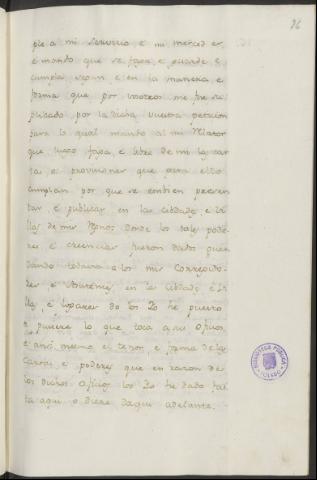 86
ple a mi servicio e mi merced es,
e mando que se faga, e guarde e
cumpla segun e en la manera e
forma que por vosotros me fue su
plicado por la dicha vuestra peticion
para lo qual mando al mi Relator
que luego faga, e libre de mi las car
tas e provisiones que para ello
cumplan por que se embien presen
tar e publicar en las cibdades e vi
llas de mis Regnos donde los tales pode
res e creencias fueron dados quedando
dando todavia a los mis Corregido
res e Asistentes en las cibdades e vi
llas e logares do los Yo he puesto
e pusiere lo que toca a sus oficios
e ansi mesmo el tenor, e forma de las
Cartas e poderes que en razon de
los dichos oficios los Yo he dado fas
ta aqui o diere daqui adelante.
BIBLIOTECA PUBLICA
TOLEDO